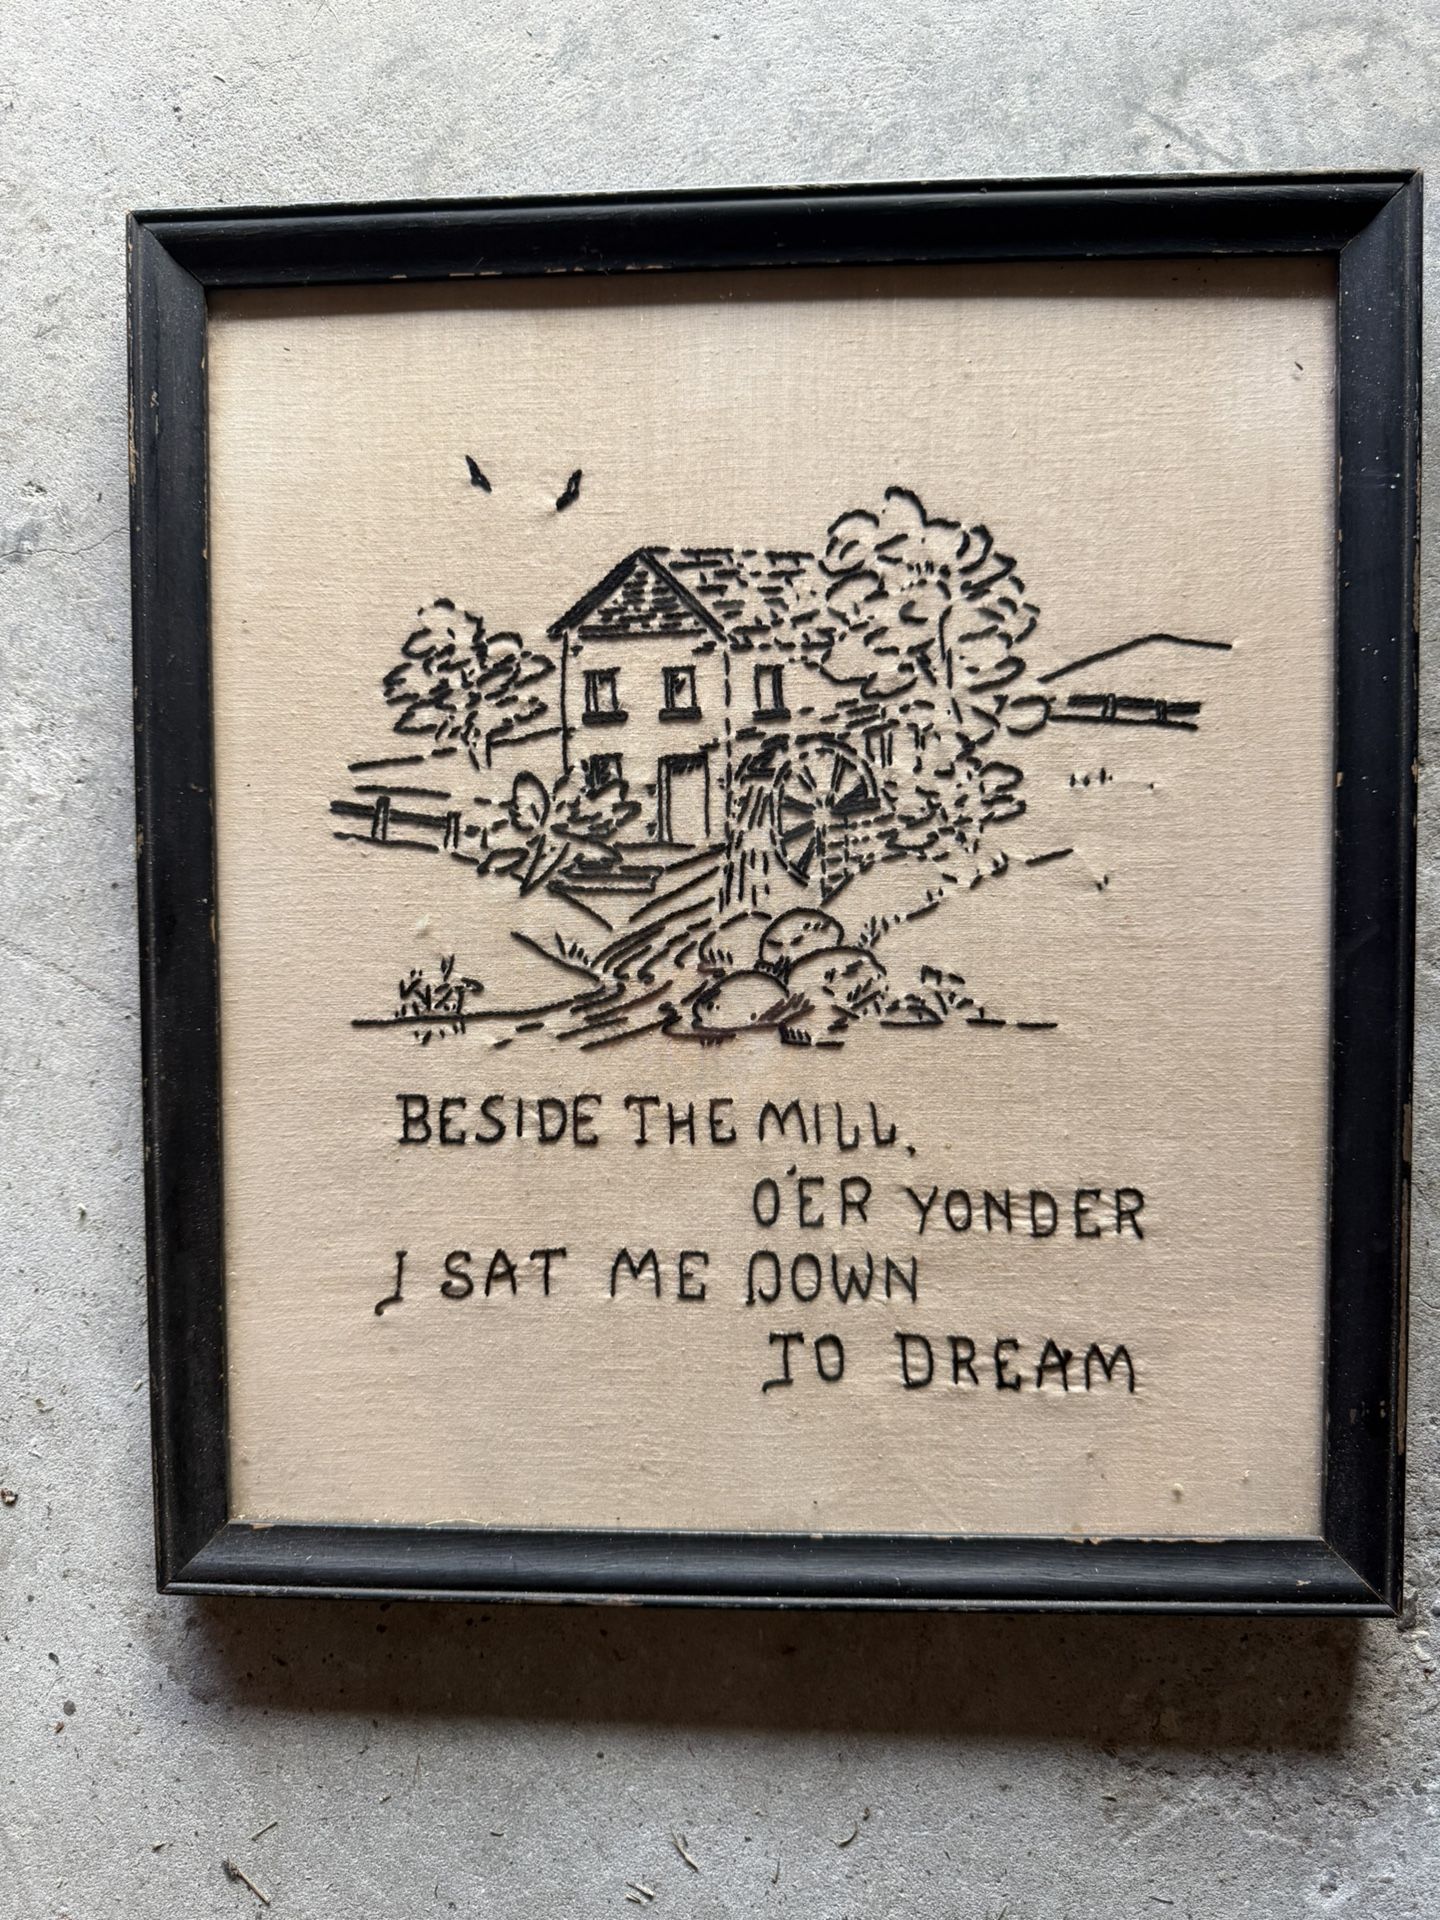 BESIDE THE MILL,
O'ER YONDER
I SAT ME DOWN
TO DREAM